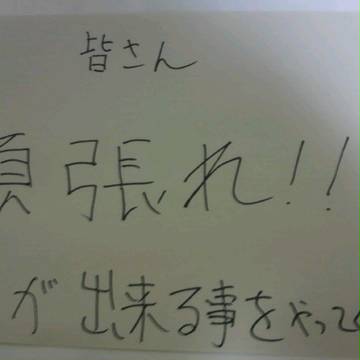 皆さん
頑張れ!!
が出来る事をやって